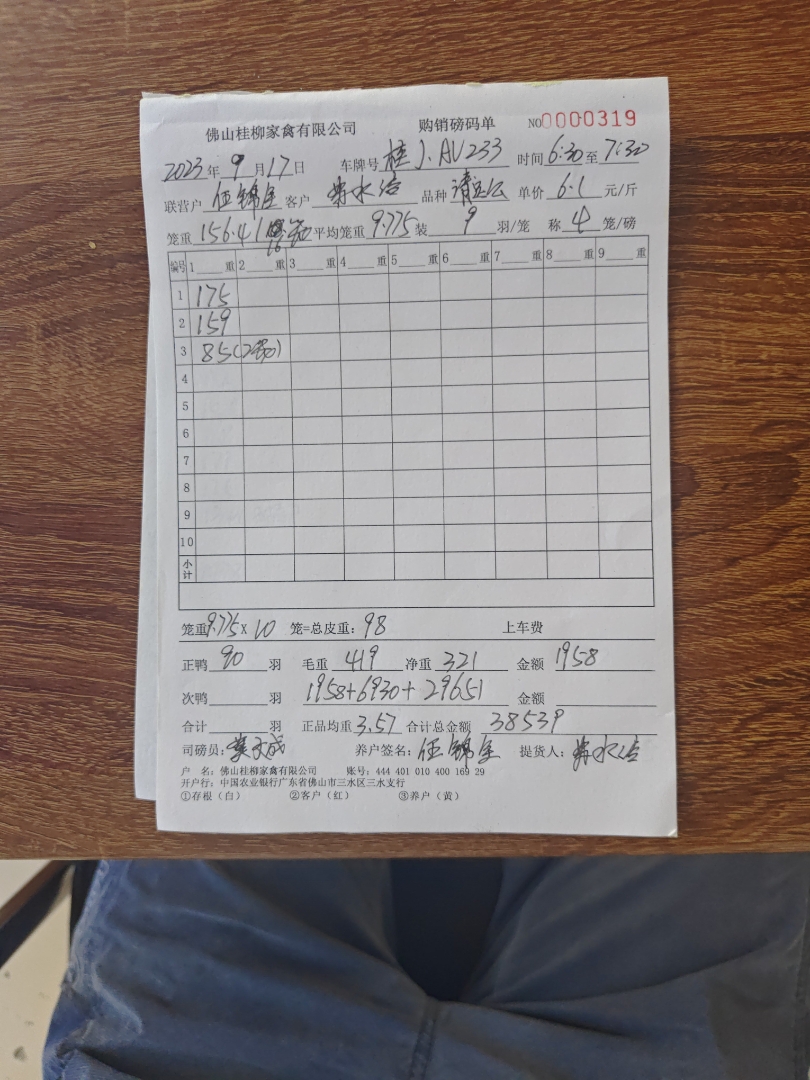 佛山桂柳家禽有限公司 购销磅码单 NO0000319
2023年9月17日 车牌号 桂J.AV233 时间 6:30 至 7:30
联营户 伍锦全 客户 品种 单价 6.1 元/斤
笼重 156.4 平均笼重 9.775 装 9 羽/笼 称 4 笼/磅
编号 1 重 2 重 3 重 4 重 5 重 6 重 7 重 8 重 9 重
1 175
2 159
3 85(2笼)
4
5
6
7
8
9
10
小计
笼重 9.775 X 10 笼=总皮重: 98 上车费
正鸭 90 羽 毛重 419 净重 321 金额 1958
次鸭 羽 1958+6930+29651 金额
合计 羽 正品均重 3.57 合计总金额 38539
司磅员: 养户签名: 伍锦全 提货人:
户 名: 佛山桂柳家禽有限公司 账号: 444 401 010 400 169 29
开户行: 中国农业银行广东省佛山市三水区三水支行
①存根(白) ②客户(红) ③养户(黄)